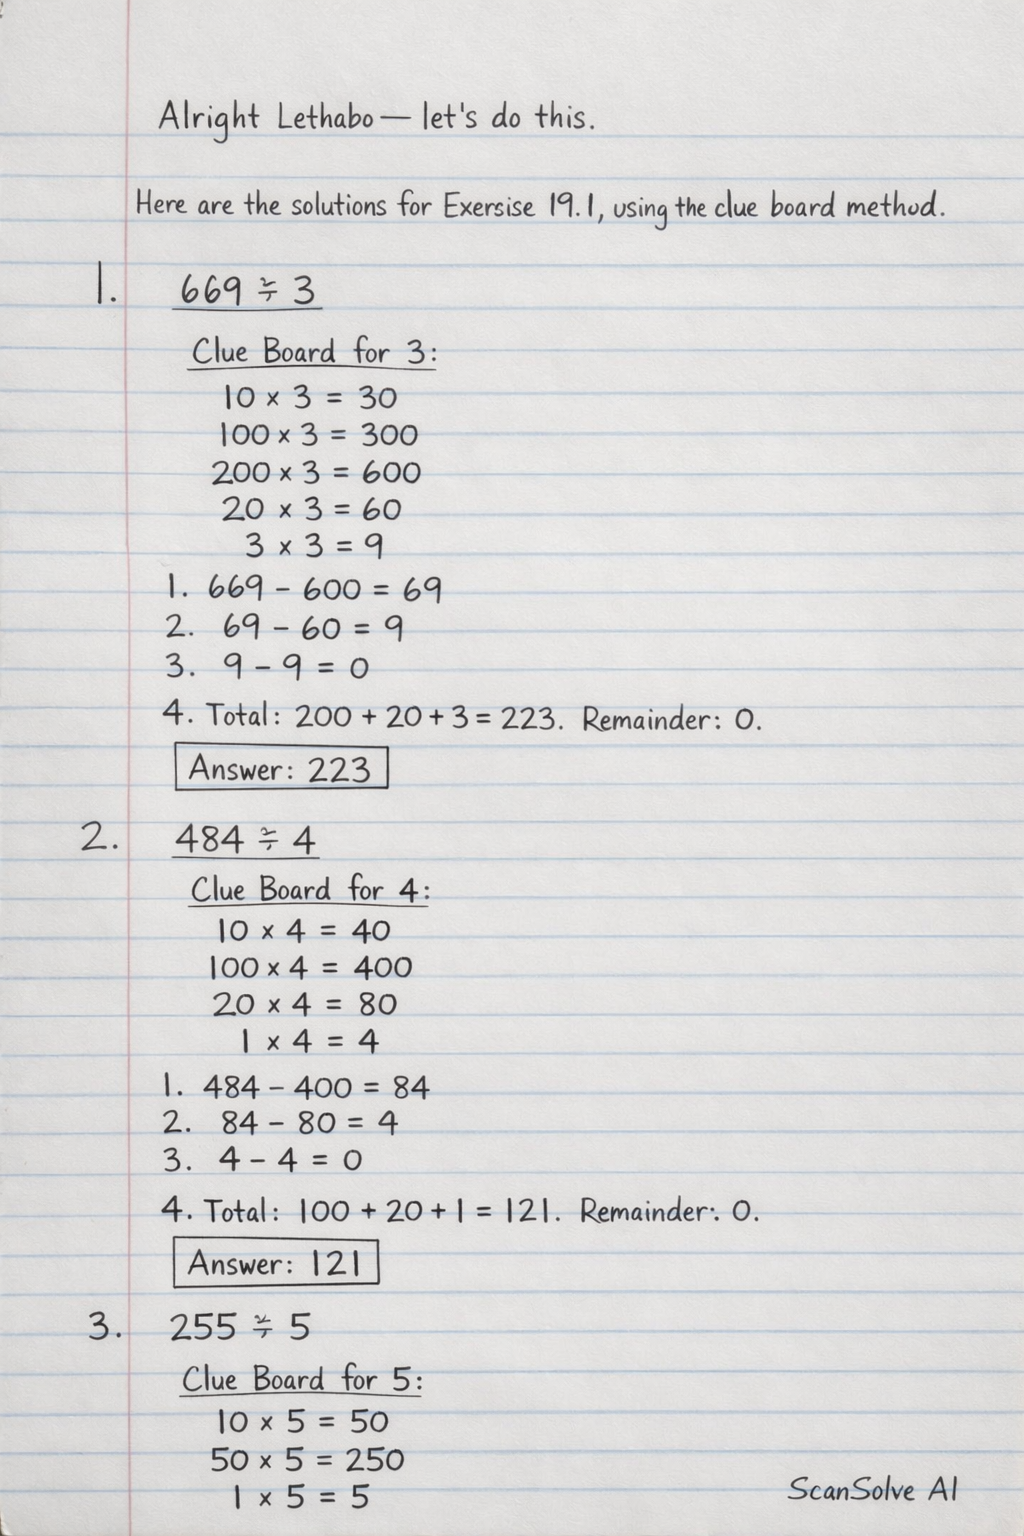 Alright Lethabo — let's do this.
Here are the solutions for Exersise 19.1, using the clue board method.
1. 669 ÷ 3
Clue Board for 3:
10 × 3 = 30
100 × 3 = 300
200 × 3 = 600
20 × 3 = 60
3 × 3 = 9
1. 669 - 600 = 69
2. 69 - 60 = 9
3. 9 - 9 = 0
4. Total: 200 + 20 + 3 = 223. Remainder: 0.
Answer: 223
2. 484 ÷ 4
Clue Board for 4:
10 × 4 = 40
100 × 4 = 400
20 × 4 = 80
1 × 4 = 4
1. 484 - 400 = 84
2. 84 - 80 = 4
3. 4 - 4 = 0
4. Total: 100 + 20 + 1 = 121. Remainder: 0.
Answer: 121
3. 255 ÷ 5
Clue Board for 5:
10 × 5 = 50
50 × 5 = 250
1 × 5 = 5
ScanSolve AI